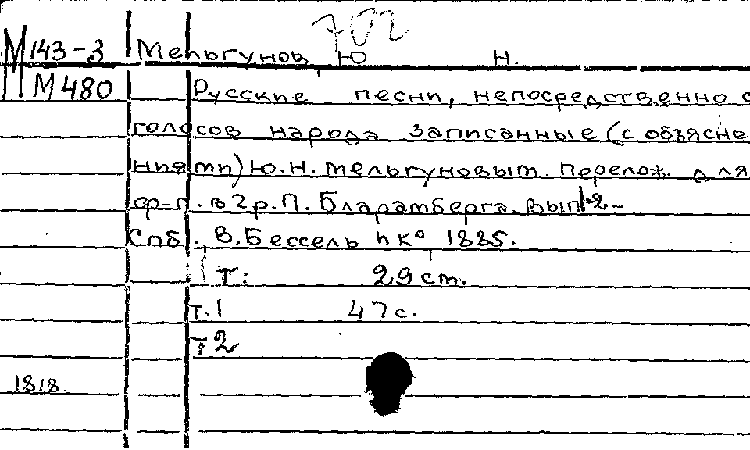 702
М143-3 Мельгунов, Ю Н.
М480 Русские песни, непосредственно с
голосов народа записанные (с объясне
ниями) Ю.Н. Мельгуновым. Перелож. для
ф-п. в 2 р. П. Бларамберга. Вып 1-2-
Спб., В. Бессель и К° 1885.
Т: 29 ст.
т.1 47 с.
т2
1818